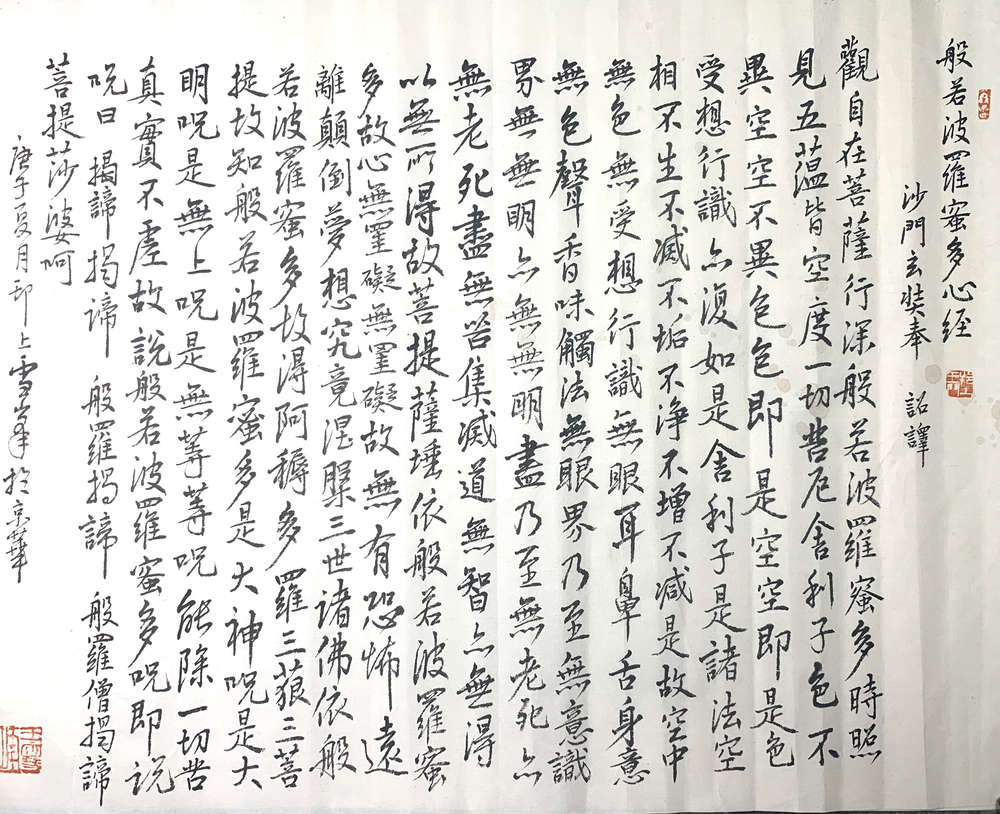 般若波羅蜜多心経
沙門玄奘奉 詔譯
觀自在菩薩行深般若波羅蜜多時照
見五蘊皆空度一切苦厄舍利子色不
異空空不異色色即是空空即是色
受想行識亦復如是舍利子是諸法空
相不生不滅不垢不淨不增不減是故空中
無色無受想行識無眼耳鼻舌身意
無色聲香味觸法無眼界乃至無意識
界無無明亦無無明盡乃至無老死亦
無老死盡無苦集滅道無智亦無得
以無所得故菩提薩埵依般若波羅蜜
多故心無罣礙無罣礙故無有恐怖遠
離顛倒夢想究竟涅槃三世諸佛依般
若波羅蜜多故得阿耨多羅三藐三菩
提故知般若波羅蜜多是大神呪是大
明呪是無上呪是無等等呪能除一切苦
真實不虛故說般若波羅蜜多呪即说
呪曰 揭諦揭諦 般羅揭諦 般羅僧揭諦
菩提莎婆呵
庚子夏月 上雪峯於京華